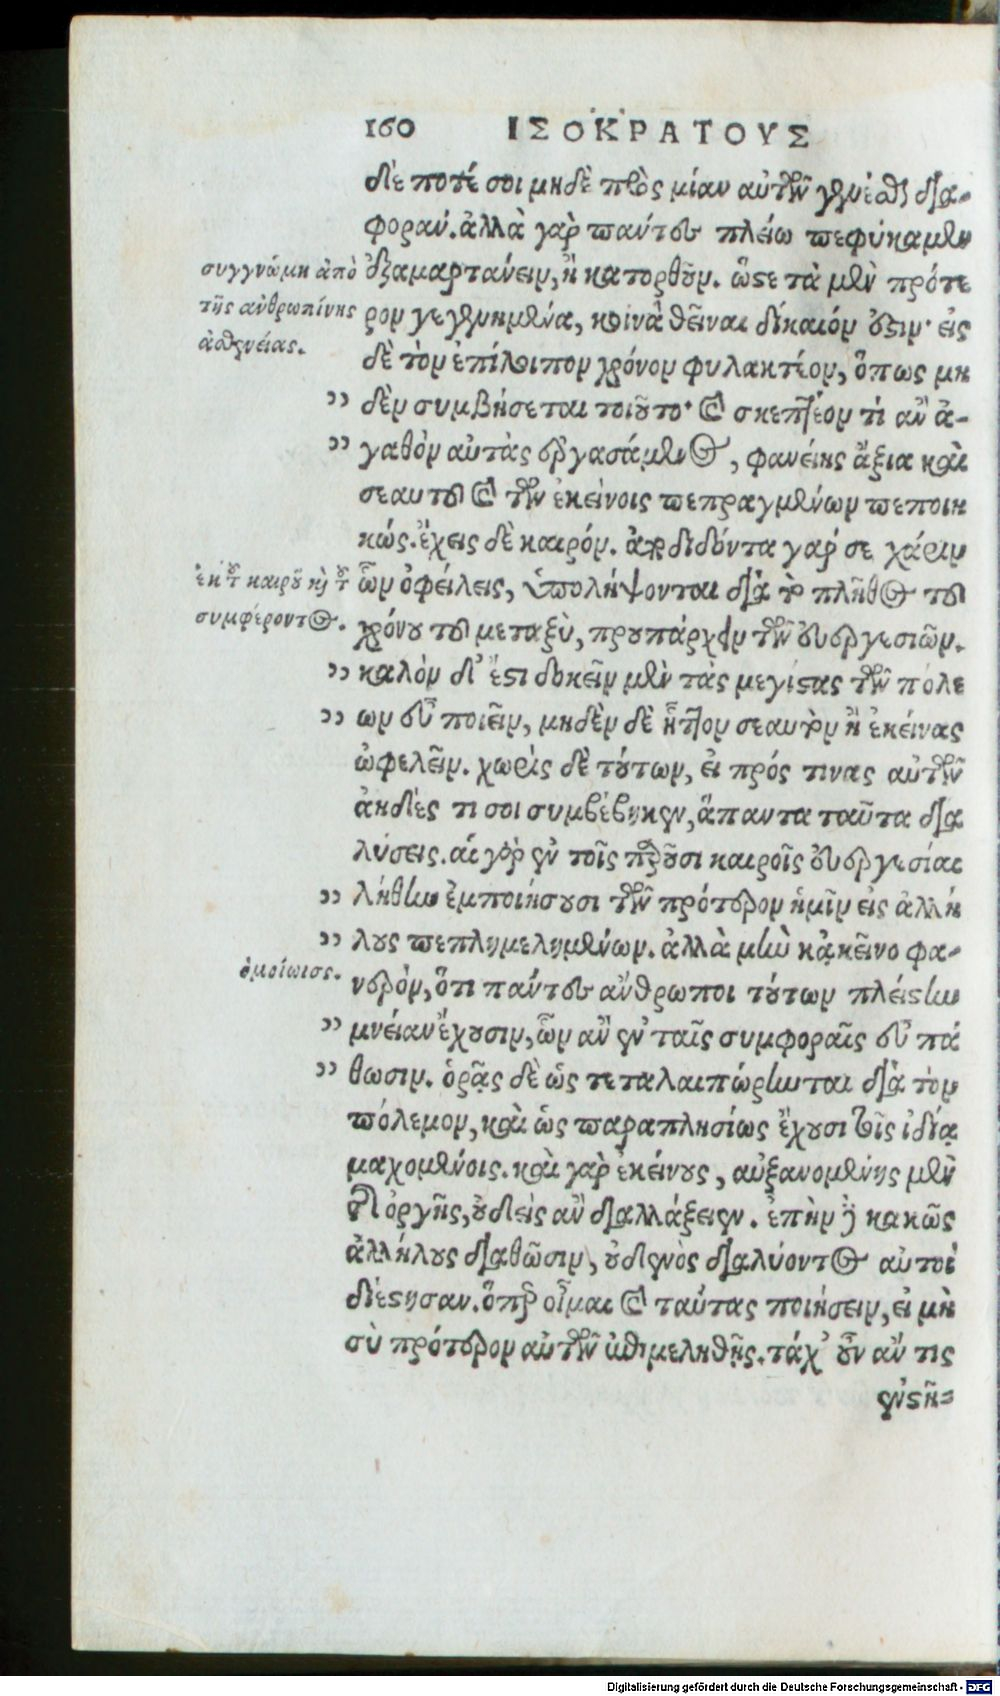 160 ΙΣΟΚΡΑΤΟΥΣ
δέ ποτέ σοι μηδὲ πρὸς μίαν αὐτῶν γενέσθαι δια-
φοράν. ἀλλὰ γὰρ πάντες πλείω πεφύκαμεν
συγγνώμη ἀπὸ
ἐξαμαρτάνειν, ἢ κατορθοῦν. ὥστε τὰ μὲν πρότε
τῆς ἀνθρωπίνης
ρον γεγενημένα, κοινὰ θεῖναι δίκαιόν ἐστιν· εἰς
ἀσθενείας.
δὲ τὸν ἐπίλοιπον χρόνον φυλακτέον, ὅπως μη
" δὲν συμβήσεται τοιοῦτο· καὶ σκεπτέον τί ἂν ἀ-
" γαθὸν αὐτὰς ἐργασάμενος, φανείης ἄξια καὶ
σεαυτοῦ καὶ τῶν ἐκείνοις πεπραγμένων πεποιη
κώς. ἔχεις δὲ καιρόν. ἀποδιδόντα γάρ σε χάριν
ἐκ τοῦ καιροῦ καὶ τοῦ
ὧν ὀφείλεις, ὑπολήψονται διὰ τὸ πλῆθος τοῦ
συμφέροντος.
χρόνου τοῦ μεταξὺ, προυπάρχειν τῶν εὐεργεσιῶν.
" καλὸν δ' ἐστὶ δοκεῖν μὲν τὰς μεγίστας τῶν πόλε
" ων εὖ ποιεῖν, μηδὲν δὲ ἧττον σεαυτὸν ἢ ἐκείνας
ὠφελεῖν. χωρὶς δὲ τούτων, εἰ πρός τινας αὐτῶν
ἀηδές τι σοι συμβέβηκεν, ἅπαντα ταῦτα δια
λύσεις. αἱ γὰρ ἐν τοῖς παροῦσι καιροῖς εὐεργεσίαι
" λήθην ἐμποιήσουσι τῶν πρότερον ἡμῖν εἰς ἀλλή
" λους πεπλημελημένων. ἀλλὰ μὴν κᾀκεῖνο φα-
ὁμοίωισς.
νερὸν, ὅτι πάντες ἄνθρωποι τούτων πλείστην
" μνείαν ἔχουσιν, ὧν ἂν ἐν ταῖς συμφοραῖς εὖ πά
" θωσιν. ὁρᾷς δὲ ὡς τεταλαιπώρηνται διὰ τὸν
πόλεμον, καὶ ὡς παραπλησίως ἔχουσι τοῖς ἰδίᾳ
μαχομένοις. καὶ γὰρ ἐκείνους, αὐξανομένης μὲν
τῆς ὀργῆς, οὐδεὶς ἂν διαλλάξειεν. ἐπὴν δὲ κακῶς
ἀλλήλους διαθῶσιν, οὐδενὸς διαλύοντος αὐτοὶ
διέστησαν. ὅπερ οἶμαι καὶ ταύτας ποιήσειν, εἰ μὴ
σὺ πρότερον αὐτῶν ἐπιμεληθῇς. τάχ' οὖν ἄν τις
ἐνστῆ-
Digitalisierung gefördert durch die Deutsche Forschungsgemeinschaft - DFG